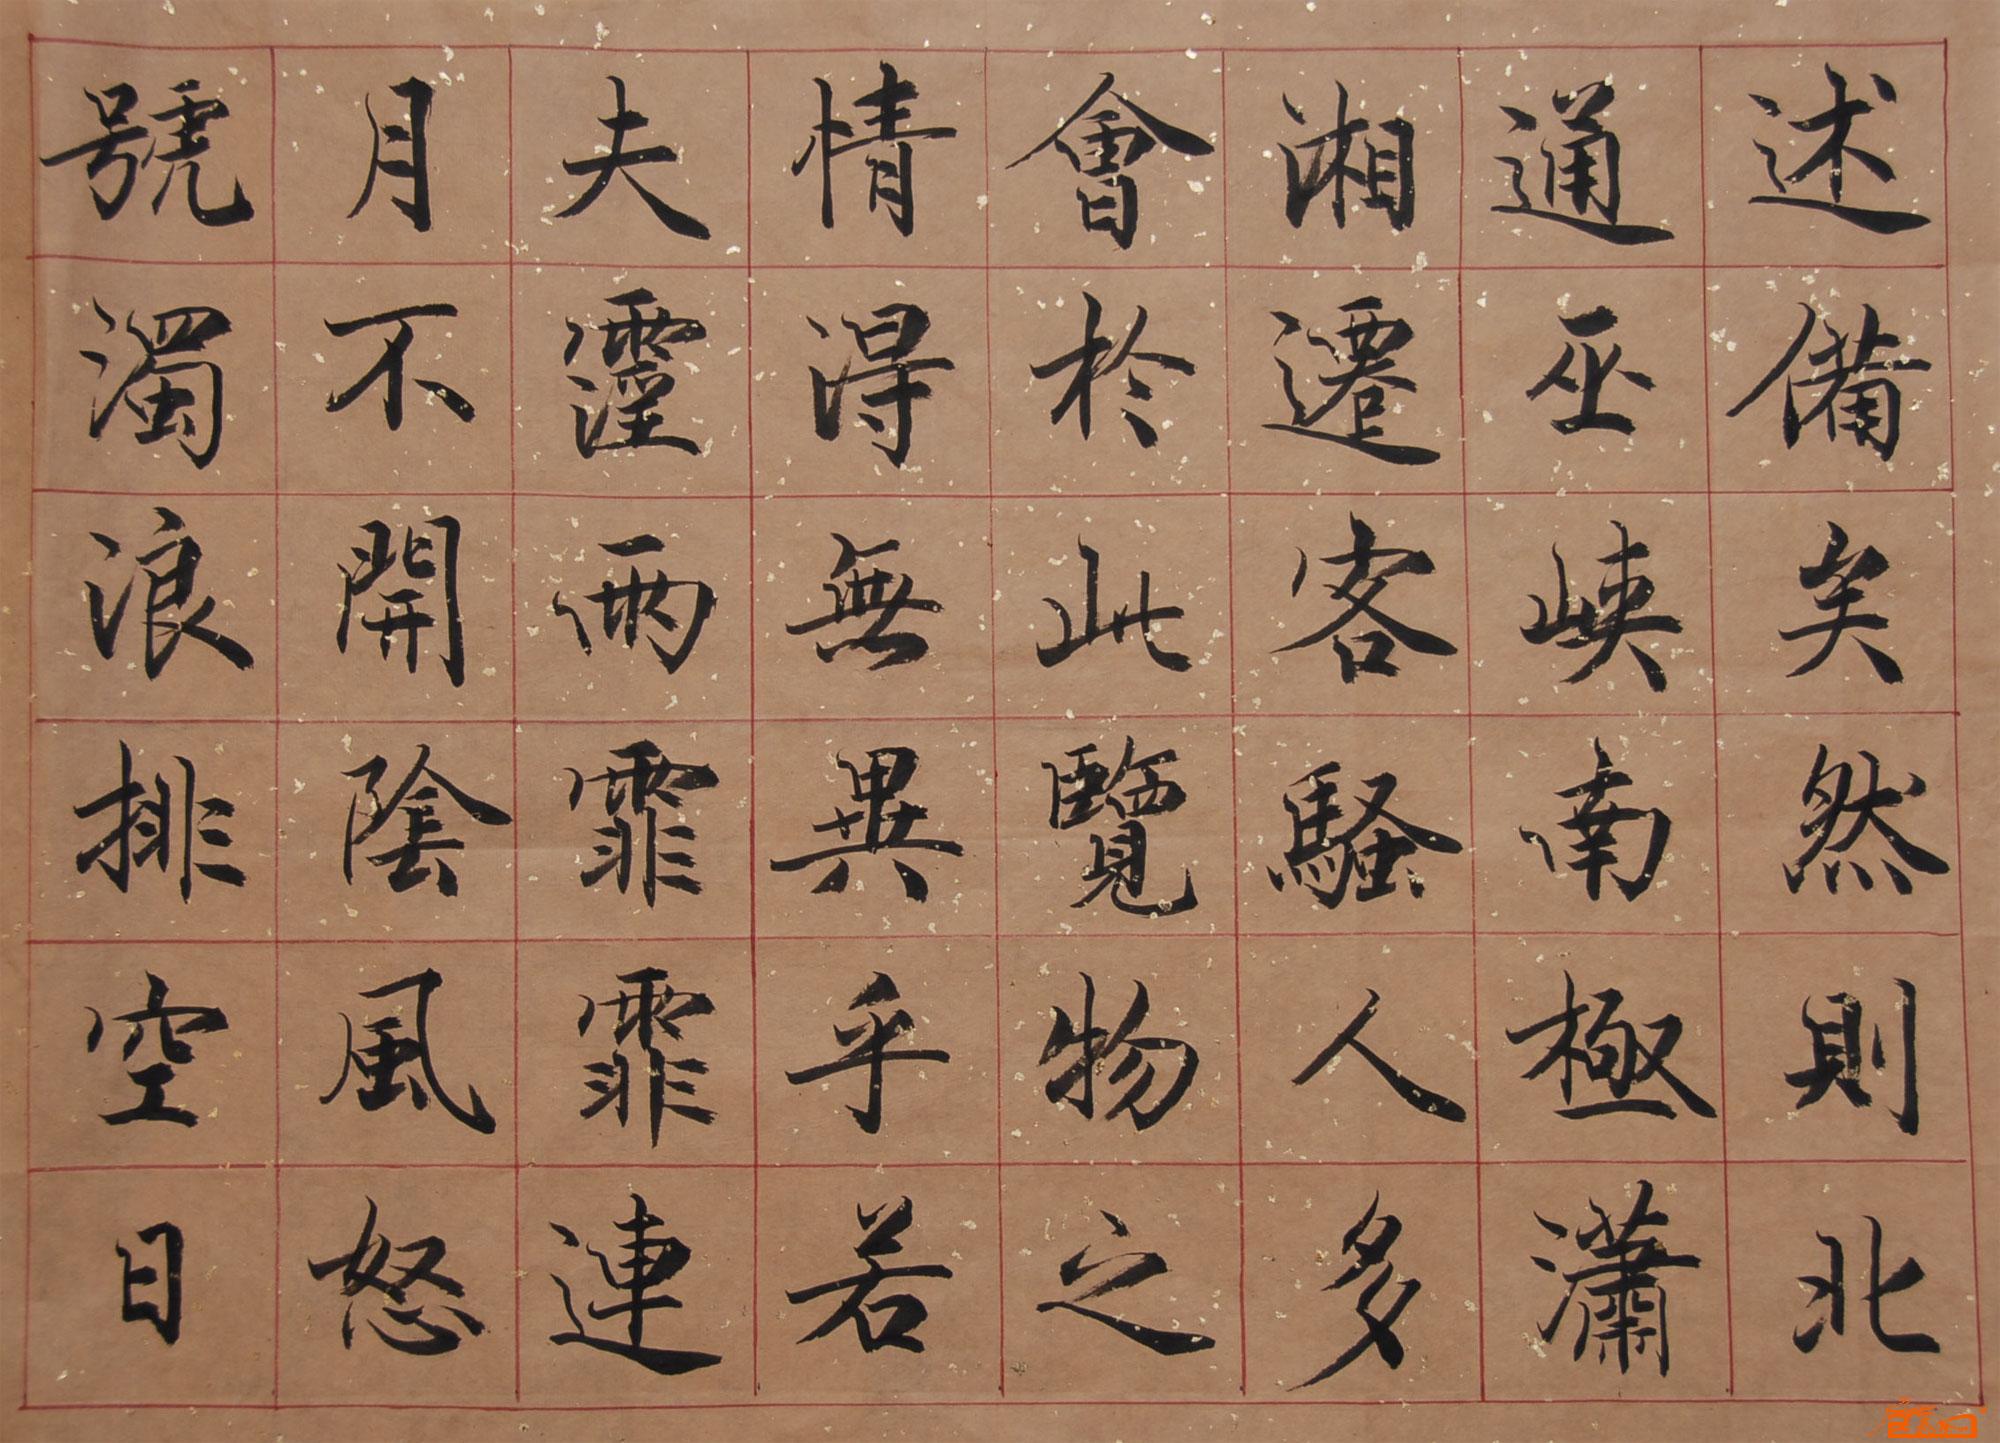 述備矣然則北
通巫峽南極瀟
湘遷客騷人多
會於此覽物之
情得無異乎若
夫霪雨霏霏連
月不開陰風怒
號濁浪排空日